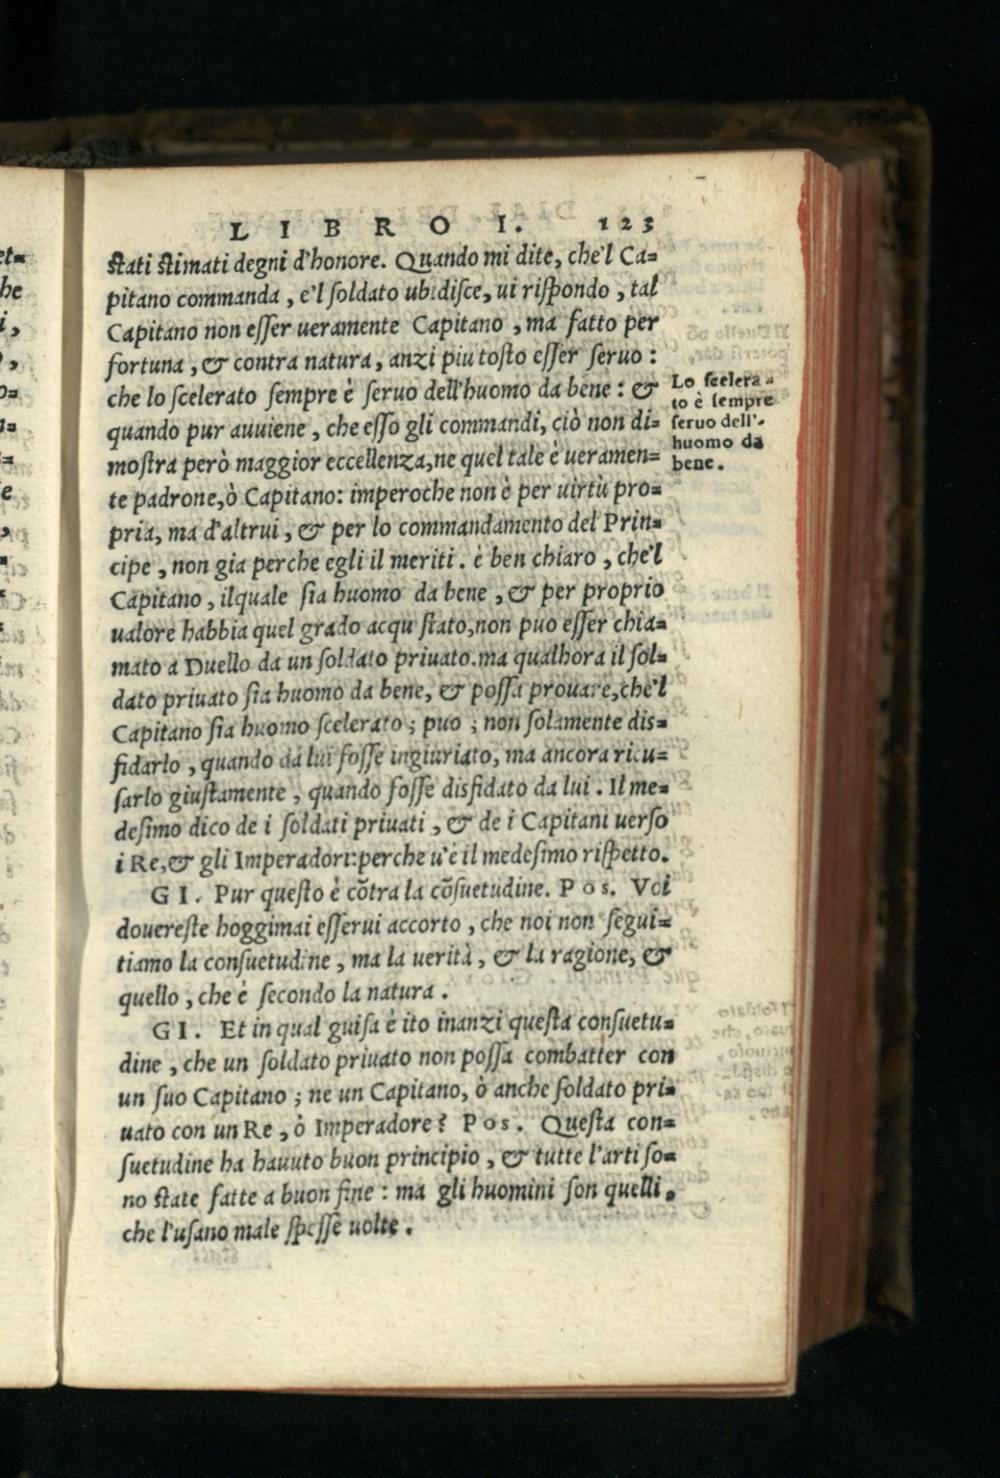 LIBRO I. 123
stati stimati degni d'honore. Quando mi dite, che'l Ca=
pitano commanda, e'l soldato ubidisce, ui rispondo, tal
Capitano non esser ueramente Capitano, ma fatto per
fortuna, & contra natura, anzi piu tosto esser seruo:
che lo scelerato sempre è seruo dell'huomo da bene: &
quando pur auuiene, che esso gli commandi, ciò non di=
mostra però maggior eccellenza, ne quel tale è ueramen=
te padrone, ò Capitano: imperoche non è per uirtù pro=
pria, ma d'altrui, & per lo commandamento del Prin=
cipe, non gia perche egli il meriti. è ben chiaro, che'l
Capitano, ilquale sia huomo da bene, & per proprio
ualore habbia quel grado acquistato, non puo esser chia=
mato a Duello da un soldato priuato. ma qualhora il sol=
dato priuato sia huomo da bene, & possa prouare, che'l
Capitano sia huomo scelerato; puo; non solamente dis=
fidarlo, quando da lui fosse ingiuriato, ma ancora ricu=
sarlo giustamente, quando fosse disfidato da lui. Il me=
desimo dico de i soldati priuati, & de i Capitani uerso
i Re, & gli Imperadori: perche u'è il medesimo rispetto.
GI. Pur questo è cōtra la cōsuetudine. Pos. Voi
douereste hoggimai esserui accorto, che noi non segui=
tiamo la consuetudine, ma la uerità, & la ragione, &
quello, che è secondo la natura.
GI. Et in qual guisa è ito inanzi questa consuetu=
dine, che un soldato priuato non possa combatter con
un suo Capitano; ne un Capitano, ò anche soldato pri=
uato con un Re, ò Imperadore? Pos. Questa con=
suetudine ha hauuto buon principio, & tutte l'arti so=
no state fatte a buon fine: ma gli huomini son quelli,
che l'usano male spesse uolte.
Lo scelera=
to è sempre
seruo dell'
huomo da
bene.